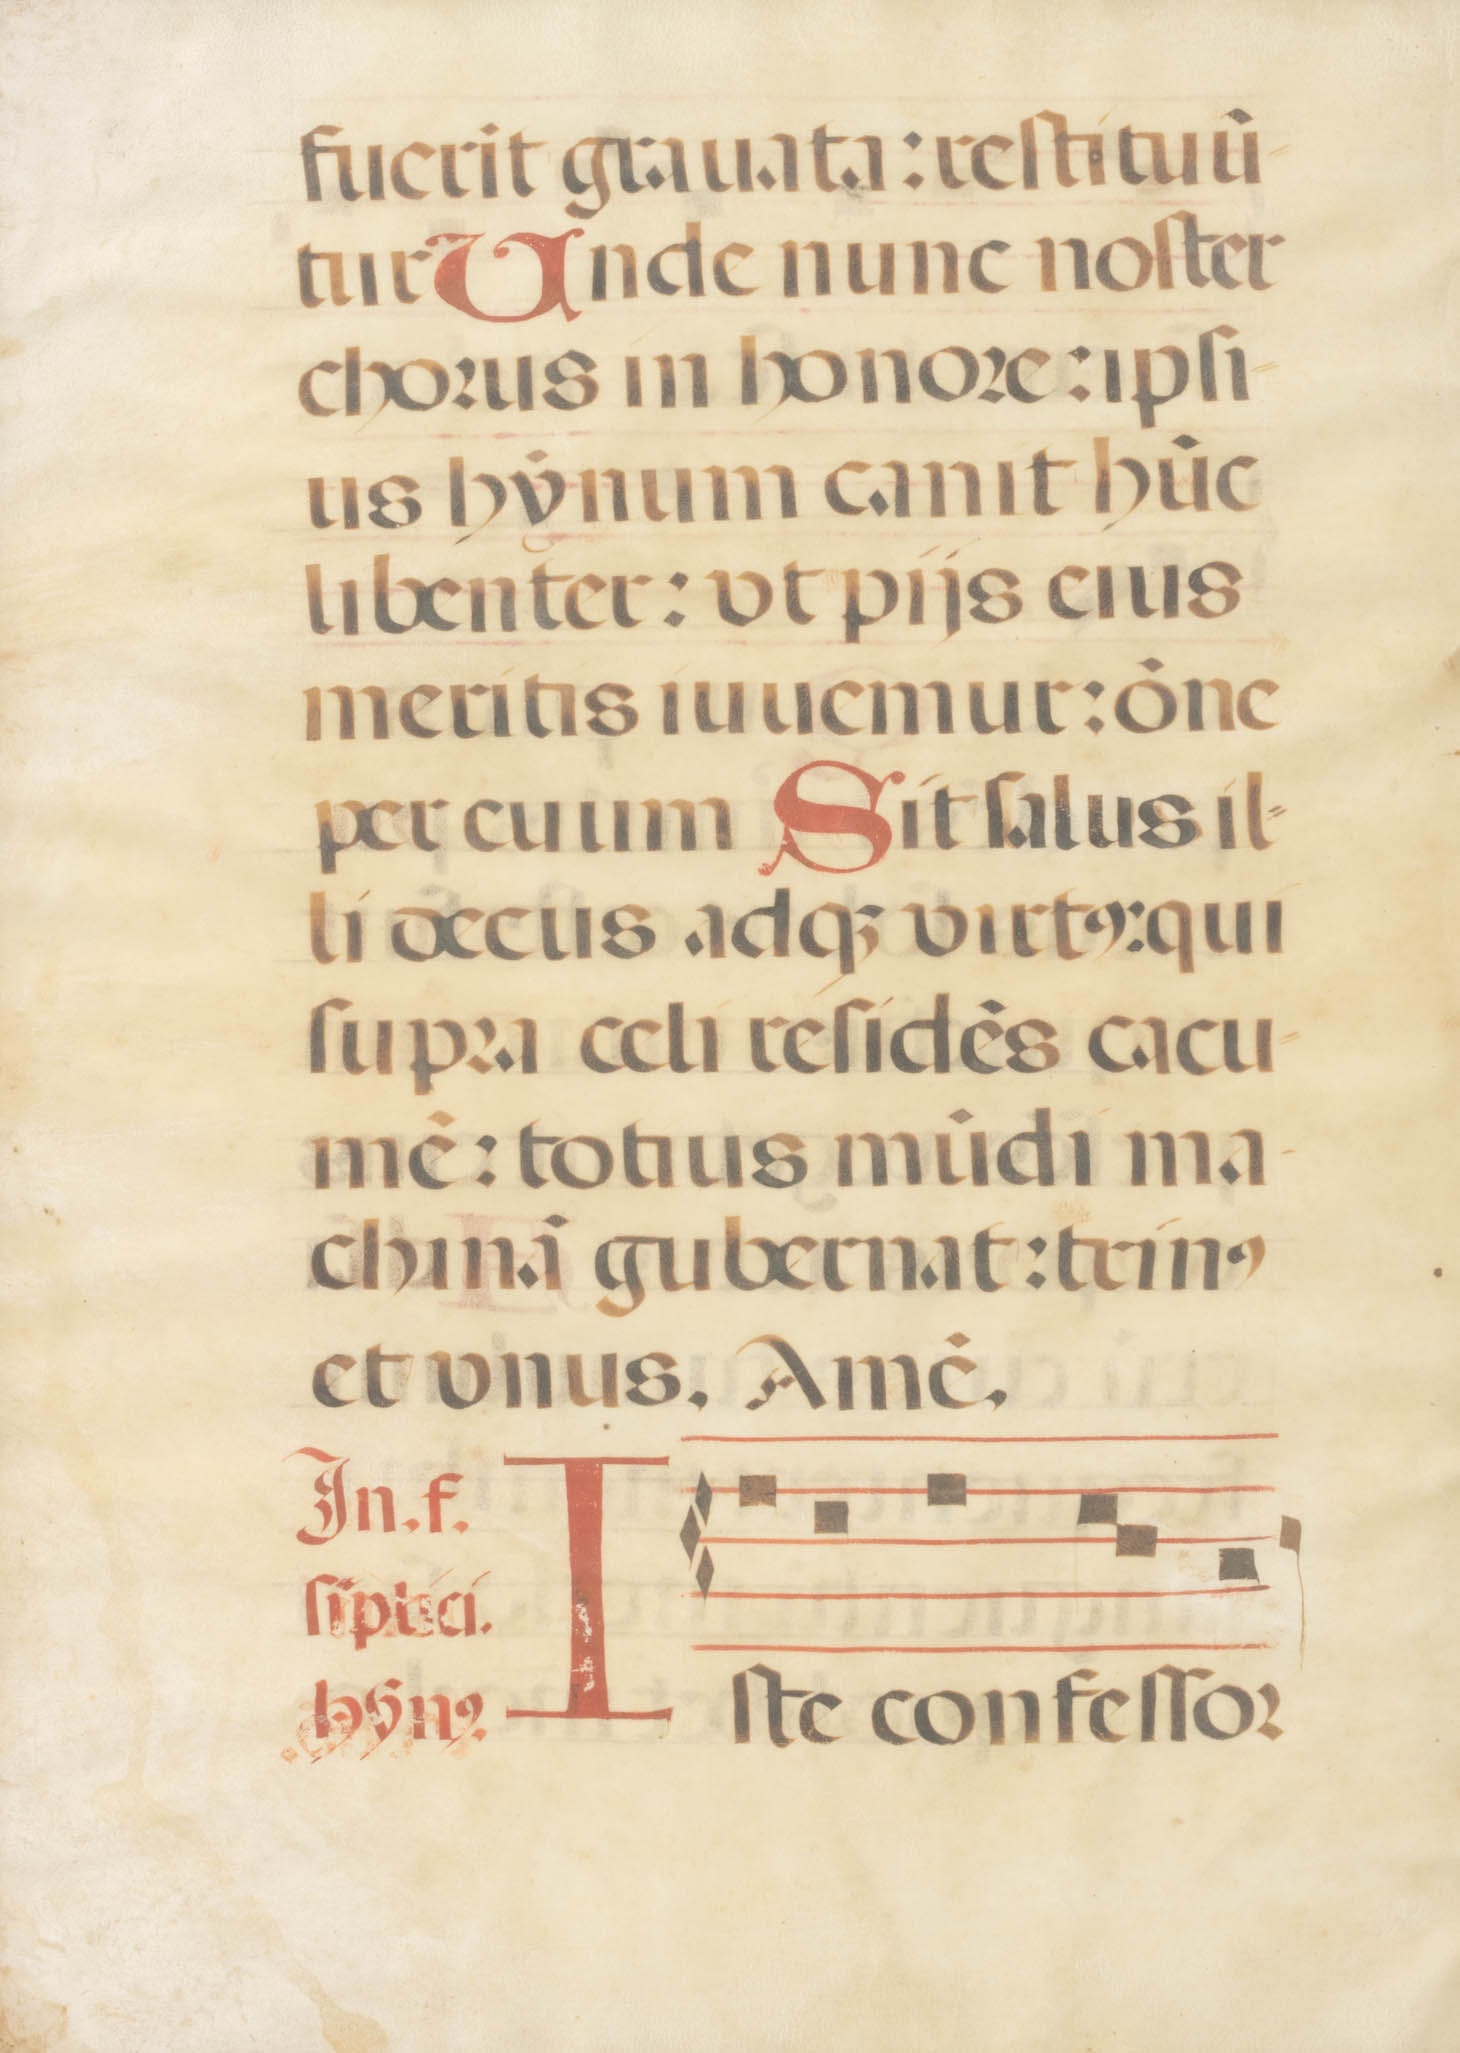 fuerit grauata : restituū-
tur Unde nunc noster
chorus in honore : ipsi-
us hȳnum canit hūc
libenter : vt pijs eius
meritis iuuemur : ōne
per euum Sit salus il-
li decus adqꝫ virtꝰ : qui
supra celi residēs cacu-
mē : totius mūdi ma-
chinā gubernat : trinꝰ
et vnus. Amē.
In . f.
siplici.
hȳnꝰ
Iste confessor